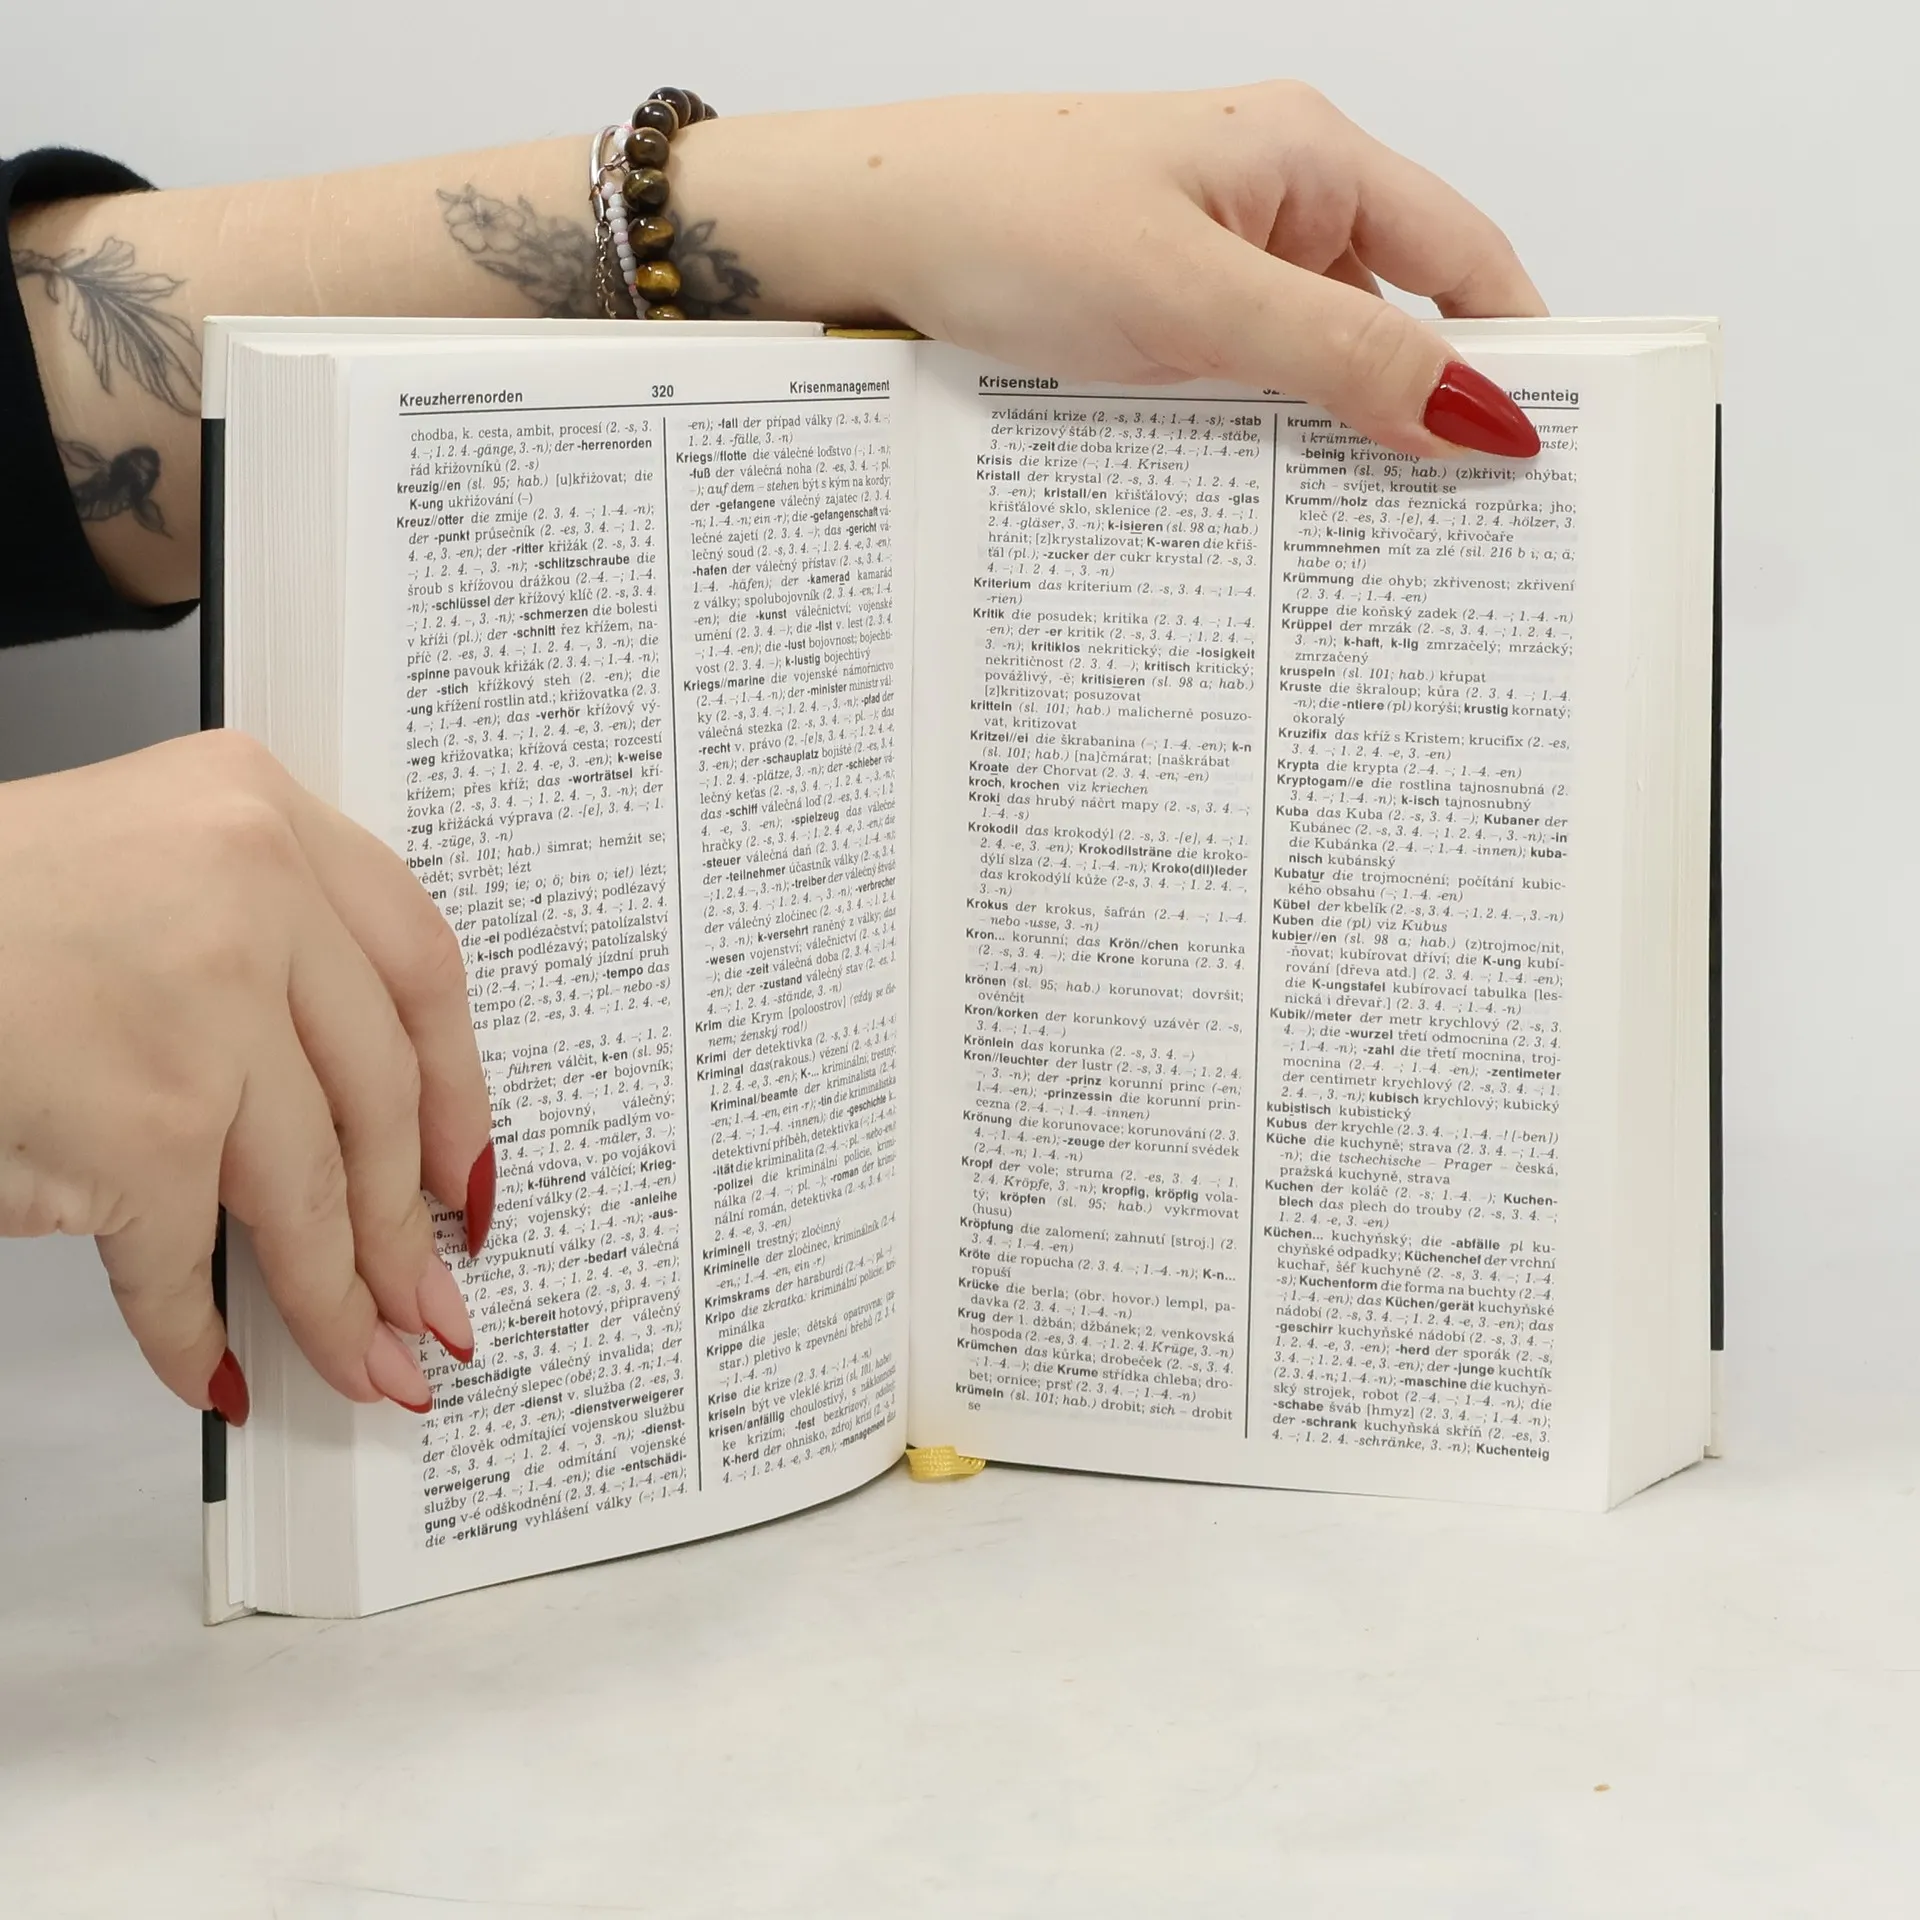 Kreuzherrenorden 320 Krisenmanagement
chodba, k. cesta, ambit, procesí (2. -s, 3.
4. –; 1. 2. 4. -gänge, 3. -n); der -herrenorden
řád křižovníků (2. -s)
kreuzig//en (sl. 95; hab.) [u]křižovat; die
K-ung ukřižování (–)
Kreuz//otter die zmije (2. 3. 4. –; 1.–4. -n);
der -punkt průsečník (2. -es, 3. 4. –; 1. 2.
4. -e, 3. -en); der -ritter křižák (2. -s, 3. 4.
–; 1. 2. 4. –, 3. -n); -schlitzschraube die
šroub s křížovou drážkou (2.–4. –; 1.–4.
-n); -schlüssel der křížový klíč (2. -s, 3. 4.
–; 1. 2. 4. –, 3. -n); -schmerzen die bolesti
v kříži (pl.); der -schnitt řez křížem, na-
příč (2. -es, 3. 4. –; 1. 2. 4. –, 3. -n); die
-spinne pavouk křižák (2. 3. 4. –; 1.–4. -n);
der -stich křížkový steh (2. -en); die
-ung křížení rostlin atd.; křižovatka (2. 3.
4. –; 1.–4. -en); das -verhör křížový vý-
slech (2. -s, 3. 4. –; 1. 2. 4. -e, 3. -en); der
-weg křižovatka; křížová cesta; rozcestí
(2. -es, 3. 4. –; 1. 2. 4. -e, 3. -en); k-weise
křížem; přes kříž; das -worträtsel kří-
žovka (2. -s, 3. 4. –; 1. 2. 4. –, 3. -n); der
-zug křižácká výprava (2. -[e], 3. 4. –; 1.
2. 4. -züge, 3. -n)
(sl. 101; hab.) šimrat; hemžit se;
svrbět; lézt
(sil. 199; ie; o; ö; bin o; ie!) lézt;
se; plazit se; -d plazivý; podlézavý
der patolízal (2. -s, 3. 4. –; 1. 2. 4.
die -ei podlézačství; patolízalství
k-isch podlézavý; patolízalský
die pravý pomalý jízdní pruh
(2.–4. –; 1.–4. -en); -tempo das
tempo (2. -s, 3. 4. –; pl. – nebo -s)
plaz (2. -es, 3. 4. –; 1. 2. 4. -e,
vojna (2. -es, 3. 4. –; 1. 2.
– führen válčit, k-en (sl. 95;
obdržet; der -er bojovník;
(2. -s, 3. 4. –; 1. 2. 4. –, 3.
bojovný, válečný;
das pomník padlým vo-
3. 4. –; 1. 2. 4. -mäler, 3. –);
vdova, v. po vojákovi
-n); k-führend válčící; Krieg-
války (2.–4. –; 1.–4. -en)
vojenský; die -anleihe
(2. 3. 4. –; 1.–4. -n); -aus-
der vypuknutí války (2. -s, 3. 4. –;
-brüche, 3. -n); der -bedarf válečná
(2. -es, 3. 4. –; 1. 2. 4. -e, 3. -en);
válečná sekera (2. -s, 3. 4. –; 1.
-en); k-bereit hotový, připravený
-berichterstatter der válečný
(2. -s, 3. 4. –; 1. 2. 4. –, 3. -n);
-beschädigte válečný invalida; der
válečný slepec (obě; 2. 3. 4. -n; 1.–4.
-n; ein -r); der -dienst v. služba (2. -es, 3.
4. –; 1. 2. 4. -e, 3. -en); -dienstverweigerer
der člověk odmítající vojenskou službu
(2. -s, 3. 4. –; 1. 2. 4. –, 3. -n); -dienst-
verweigerung die odmítání vojenské
služby (2.–4. –; 1.–4. -en); die -entschädi-
gung v-é odškodnění (2. 3. 4. –; 1.–4. -en);
die -erklärung vyhlášení války (–; 1.–4.
-en); -fall der případ války (2. -s, 3. 4. –;
1. 2. 4. -fälle, 3. -n)
Kriegs//flotte die válečné loďstvo (–; 1. -n);
-fuß der válečná noha (2. -es, 3. 4. –; pl.
–); auf dem – stehen být s kým na kordy;
der -gefangene válečný zajatec (2. 3. 4.
-n; 1.–4. -n; ein -r); die -gefangenschaft vá-
lečné zajetí (2. 3. 4. –); das -gericht vá-
lečný soud (2. -s, 3. 4. –; 1. 2. 4. -e, 3. -en);
-hafen der válečný přístav (2. -s, 3. 4. –;
1.–4. -häfen); der -kamerad kamarád
z války; spolubojovník (2. 3. 4. -en; 1.–4.
-en); die -kunst válečnictví; vojenské
umění (2. 3. 4. –); die -list v. lest (2. 3. 4.
–; 1.–4. -en); die -lust bojovnost; bojechti-
vost (2. 3. 4. –); k-lustig bojechtivý
Kriegs//marine die vojenské námořnictvo
(2.–4. –; 1.–4. -n); der -minister ministr vál-
ky (2. -s, 3. 4. –; 1. 2. 4. –, 3. -n); -pfad der
válečná stezka (2. -s, 3. 4. –; pl. –); das
-recht v. právo (2. -[e]s, 3. 4. –; 1. 2. 4. -e,
3. -en); der -schauplatz bojiště (2. -es, 3. 4.
–; 1. 2. 4. -plätze, 3. -n); der -schieber vá-
lečný keťas (2. -s, 3. 4. –; 1. 2. 4. –, 3. -n);
das -schiff válečná loď (2. -es, 3. 4. –; 1. 2.
4. -e, 3. -en); -spielzeug das válečné
hračky (2. -s, 3. 4. –; 1. 2. 4. -e, 3. -en); die
-steuer válečná daň (2. 3. 4. –; 1.–4. -n);
der -teilnehmer účastník války (2. -s, 3. 4.
–; 1. 2. 4. –, 3. -n); -treiber der válečný štváč
(2. -s, 3. 4. –; 1. 2. 4. –, 3. -n); -verbrecher
der válečný zločinec (2. -s, 3. 4. –; 1. 2. 4.
–, 3. -n); k-versehrt raněný z války; das
-wesen vojenství; válečnictví (2. -s, 3. 4.
–); die -zeit válečná doba (2. 3. 4. –; 1.–4.
-en); der -zustand válečný stav (2. -es, 3.
4. –; 1. 2. 4. -stände, 3. -n)
Krim die Krym [poloostrov] (vždy se čle-
nem; ženský rod!)
Krimi der detektivka (2. -s, 3. 4. –; 1.–4. -s)
Kriminal das(rakous.) vězení (2. -s, 3. 4. –;
1. 2. 4. -e, 3. -en); K-... kriminální; trestný;
Kriminal/beamte der kriminalista (2.–4.
-en; 1.–4. -en, ein -r); -tin die kriminalistka
(2.–4. –; 1.–4. -innen); die -geschichte k.
detektivní příběh, detektivka (–; 1.–4. -n);
-ität die kriminalita (2.–4. –; pl. – nebo -en)
-polizei die kriminální policie, krimi-
nálka (2.–4. –; pl. –); -roman der krimi-
nální román, detektivka (2. -s, 3. 4. –; 1.
2. 4. -e, 3. -en)
kriminell trestný; zločinný
Kriminelle der zločinec, kriminálník (2.–4.
-en,; 1.–4. -en, ein -r)
Krimskrams der haraburdí (2.–4. –; pl. –)
Kripo die zkratka: kriminální policie, kri-
minálka
Krippe die jesle; dětská opatrovna; (za
star.) pletivo k zpevnění břehů (2. 3. 4.
–; 1.–4. -n)
Krise die krize (2. 3. 4. –; 1.–4. -n)
kriseln být ve vleklé krizi (sl. 101, hab.)
krisen/anfällig choulostivý, s náklonností
ke krizím; -fest bezkrizový, odolný;
K-herd der ohnisko, zdroj krizí (2. -s, 3.
4. –; 1. 2. 4. -e, 3. -en); -management das
Krisenstab
zvládání krize (2. -s, 3. 4.; 1.–4. -s); -stab
der krizový štáb (2. -s, 3. 4. –; 1. 2. 4. -stäbe,
3. -n); -zeit die doba krize (2.–4. –; 1.–4. -en)
Krisis die krize (–; 1.–4. Krisen)
Kristall der krystal (2. -s, 3. 4. –; 1. 2. 4. -e,
3. -en); kristall/en křišťálový; das -glas
křišťálové sklo, sklenice (2. -es, 3. 4. –; 1.
2. 4. -gläser, 3. -n); k-isieren (sl. 98 a; hab.)
hránit; [z]krystalizovat; K-waren die křiš-
ťál (pl.); -zucker der cukr krystal (2. -s, 3.
4. –; 1. 2. 4. –, 3. -n)
Kriterium das kriterium (2. -s, 3. 4. –; 1.–4.
-rien)
Kritik die posudek; kritika (2. 3. 4. –; 1.–4.
-en); der -er kritik (2. -s, 3. 4. –; 1. 2. 4. –,
3. -n); kritiklos nekritický; die -losigkeit
nekritičnost (2. 3. 4. –); kritisch kritický;
povážlivý, -ě; kritisieren (sl. 98 a; hab.)
[z]kritizovat; posuzovat
kritteln (sl. 101; hab.) malicherně posuzo-
vat, kritizovat
Kritzel//ei die škrabanina (–; 1.–4. -en); k-n
(sl. 101; hab.) [na]čmárat; [naškrábat
Kroate der Chorvat (2. 3. 4. -en; -en)
kroch, krochen viz kriechen
Kroki das hrubý náčrt mapy (2. -s, 3. 4. –;
1.–4. -s)
Krokodil das krokodýl (2. -s, 3. -[e], 4. –; 1.
2. 4. -e, 3. -en); Krokodilsträne die kroko-
dýlí slza (2.–4. –; 1.–4. -n); Kroko(dil)leder
das krokodýlí kůže (2-s, 3. 4. –; 1. 2. 4. –,
3. -n)
Krokus der krokus, šafrán (2.–4. –; 1.–4.
– nebo -usse, 3. -n)
Kron... korunní; das Krön//chen korunka
(2. -s, 3. 4. –); die Krone koruna (2. 3. 4.
–; 1.–4. -n)
krönen (sl. 95; hab.) korunovat; dovršit;
ověnčit
Kron/korken der korunkový uzávěr (2. -s,
3. 4. –; 1.–4. –)
Krönlein das korunka (2. -s, 3. 4. –)
Kron//leuchter der lustr (2. -s, 3. 4. –; 1. 2. 4.
–, 3. -n); der -prinz korunní princ (-en;
1.–4. -en); -prinzessin die korunní prin-
cezna (2.–4. –; 1.–4. -innen)
Krönung die korunovace; korunování (2. 3.
4. –; 1.–4. -en); -zeuge der korunní svědek
(2.–4. -n; 1.–4. -n)
Kropf der vole; struma (2. -es, 3. 4. –; 1.
2. 4. Kröpfe, 3. -n); kropfig, kröpfig vola-
tý; kröpfen (sl. 95; hab.) vykrmovat
(husu)
Kröpfung die zalomení; zahnutí [stroj.] (2.
3. 4. –; 1.–4. -en)
Kröte die ropucha (2. 3. 4. –; 1.–4. -n); K-n...
ropuší
Krücke die berla; (obr. hovor.) lempl, pa-
davka (2. 3. 4. –; 1.–4. -n)
Krug der 1. džbán, džbánek; 2. venkovská
hospoda (2. -es, 3. 4. –; 1. 2. 4. Krüge, 3. -n)
Krümchen das kůrka; drobeček (2. -s, 3. 4.
–; 1.–4. –); die Krume střídka chleba; dro-
bet; ornice; prsť (2. 3. 4. –; 1.–4. -n)
krümeln (sl. 101; hab.) drobit; sich – drobit
se
krumm
i krümmer,
-beinig křivonohý
krümmen (sl. 95; hab.) (z)křivit; ohýbat;
sich – svíjet, kroutit se
Krumm//holz das řeznická rozpůrka; jho;
kleč (2. -es, 3. -[e], 4. –; 1. 2. 4. -hölzer, 3.
-n); k-linig křivočarý, křivočaře
krummnehmen mít za zlé (sil. 216 b i; a; ä;
habe o; i!)
Krümmung die ohyb; zkřivenost; zkřivení
(2. 3. 4. –; 1.–4. -en)
Kruppe die koňský zadek (2.–4. –; 1.–4. -n)
Krüppel der mrzák (2. -s, 3. 4. –; 1. 2. 4. –,
3. -n); k-haft, k-lig zmrzačelý; mrzácký;
zmrzačený
kruspeln (sl. 101; hab.) křupat
Kruste die škraloup; kůra (2. 3. 4. –; 1.–4.
-n); die -ntiere (pl) korýši; krustig kornatý;
okoralý
Kruzifix das kříž s Kristem; krucifix (2. -es,
3. 4. –; 1. 2. 4. -e, 3. -en)
Krypta die krypta (2.–4. –; 1.–4 -en)
Kryptogam//e die rostlina tajnosnubná (2.
3. 4. –; 1.–4. -n); k-isch tajnosnubný
Kuba das Kuba (2. -s, 3. 4. –); Kubaner der
Kubánec (2. -s, 3. 4. –; 1. 2. 4. –, 3. -n); -in
die Kubánka (2.–4. –; 1.–4. -innen); kuba-
nisch kubánský
Kubatur die trojmocnění; počítání kubic-
kého obsahu (–; 1.–4. -en)
Kübel der kbelík (2. -s, 3. 4. –; 1. 2. 4. –, 3. -n)
Kuben die (pl) viz Kubus
kubier//en (sl. 98 a; hab.) (z)trojmoc/nit,
-ňovat; kubírovat dříví; die K-ung kubí-
rování [dřeva atd.] (2. 3. 4. –; 1.–4. -en);
die K-ungstafel kubírovací tabulka [les-
nická i dřevař.] (2. 3. 4. –; 1.–4. -n)
Kubik//meter der metr krychlový (2. -s, 3.
4. –); die -wurzel třetí odmocnina (2. 3. 4.
–; 1.–4. -n); -zahl die třetí mocnina, troj-
mocnina (2.–4. –; 1.–4. -en); -zentimeter
der centimetr krychlový (2. -s, 3. 4. –; 1.
2. 4. –, 3. -n); kubisch krychlový; kubický
kubistisch kubistický
Kubus der krychle (2. 3. 4. –; 1.–4. –! [-ben])
Küche die kuchyně; strava (2. 3. 4. –; 1.–4.
-n); die tschechische – Prager – česká,
pražská kuchyně, strava
Kuchen der koláč (2. -s; 1.–4. –); Kuchen-
blech das plech do trouby (2. -s, 3. 4. –;
1. 2. 4. -e, 3. -en)
Küchen... kuchyňský; die -abfälle pl ku-
chyňské odpadky; Küchenchef der vrchní
kuchař, šéf kuchyně (2. -s, 3. 4. –; 1.–4.
-s); Kuchenform die forma na buchty (2.–4.
–; 1.–4. -en); das Küchen/gerät kuchyňské
nádobí (2. -s, 3. 4. –; 1. 2. 4. -e, 3. -en); das
-geschirr kuchyňské nádobí (2. -s, 3. 4. –;
1. 2. 4. -e, 3. -en); -herd der sporák (2. -s,
3. 4. –; 1. 2. 4. -e, 3. -en); der -junge kuchtík
(2. 3. 4. -n; 1.–4. -n); -maschine die kuchyň-
ský strojek, robot (2.–4. –; 1.–4. -n); die
-schabe šváb [hmyz] (2. 3. 4. –; 1.–4. -n);
der -schrank kuchyňská skříň (2. -es, 3.
4. –; 1. 2. 4. -schränke, 3. -n); Kuchenteig